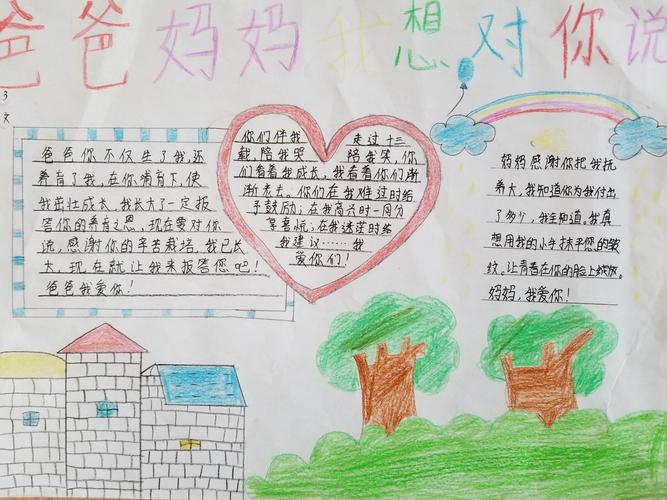 爸爸妈妈我想对你说
3
文
爸爸你不仅生了我,还
养育了我,在你哺育下,使
我茁壮成长,我长大了一定报
答你的养育之恩,现在要对你
说,感谢你的辛苦栽培,我已长
大,现在就让我来报答您吧!
爸爸我爱你!
你们伴我 走过十三
载,陪我哭 陪我笑,你
们看着我成长,我看着你们渐
渐老去。你们在我难过时给
予鼓励;在我高兴时一同分
享喜悦;在我迷茫时给
我建议……我
爱你们!
妈妈感谢你把我抚
养大,我知道你为我付出
了多少,我全知道。我真
想用我的小手扶平您的皱
纹。让青春在你的脸上绽放。
妈妈,我爱你!